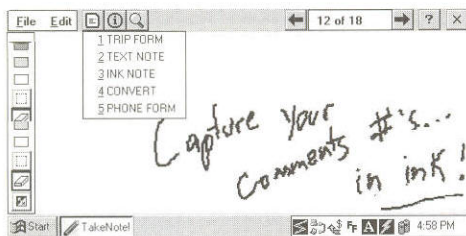 File Edit 12 of 18 ? ×
1 TRIP FORM
2 TEXT NOTE
3 INK NOTE
4 CONVERT
5 PHONE FORM
Capture your
Comments #'s...
in ink!
Start TakeNote! FF A 4:58 PM